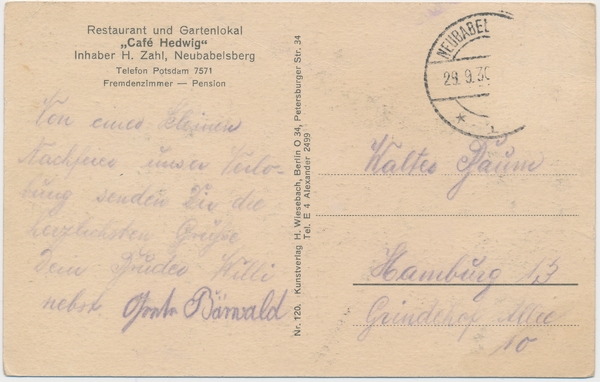 Restaurant und Gartenlokal
„Café Hedwig“
Inhaber H. Zahl, Neubabelsberg
Telefon Potsdam 7571
Fremdenzimmer — Pension
Von einer kleinen
Nachfeier unser Verlo-
bung senden Dir die
herzlichsten Grüße
Dein Bruder Willi
nebst Bärwald
Nr. 120. Kunstverlag H. Wiesebach, Berlin O 34, Petersburger Str. 34
Tel. E 4 Alexander 2499
NEUBABEL
29.9.30
Walter Baum
Hamburg 13
Grindelhof Allee
10